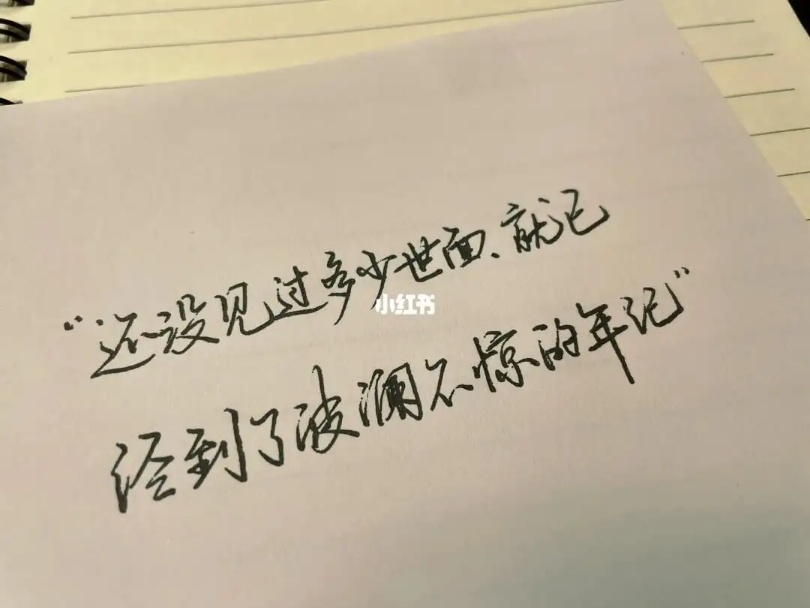 “还没见过多少世面、就已
小红书
经到了波澜不惊的年纪”